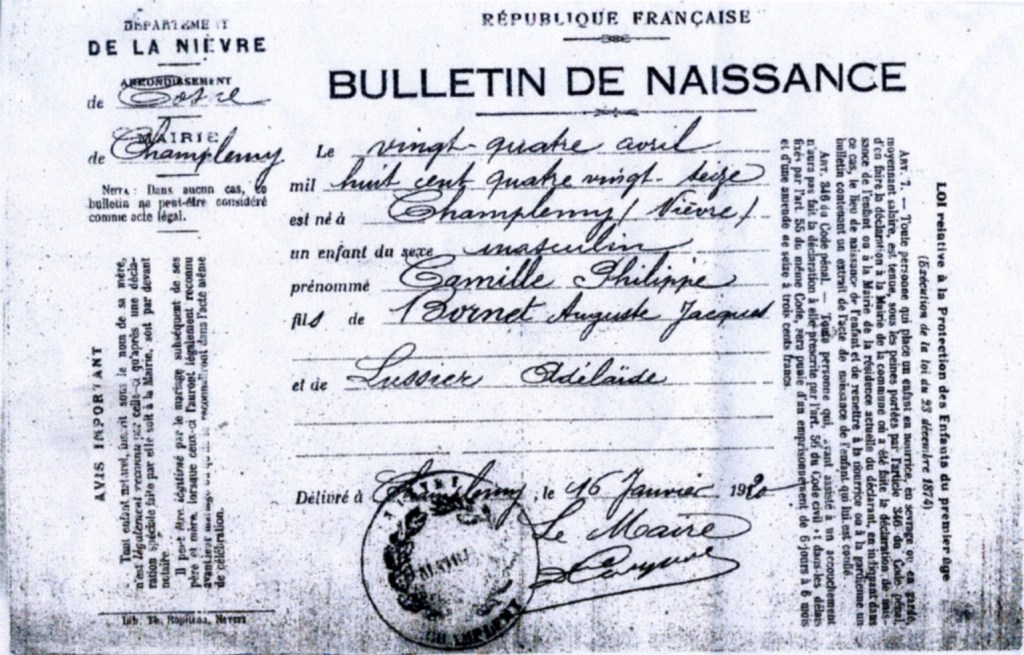 DÉPARTEMENT
DE LA NIÈVRE
ARRONDISSEMENT
de Cosne
MAIRIE
de Champlemy
NOTA : Dans aucun cas, ce
bulletin ne peut-être considéré
comme acte légal.
AVIS IMPORTANT
Tout enfant naturel, inscrit sous le nom de sa mère,
n'est légalement reconnu par celle-ci qu'après une décla-
ration spéciale faite par elle soit à la Mairie, soit par devant
notaire.
Il peut être légitimé par le mariage subséquent de ses
père et mère, lorsque ceux-ci l'auront légalement reconnu
avant leur mariage ou qu'ils le reconnaîtront dans l'acte même
de célébration.
Imb. Th. Ropiteau, Nevers
RÉPUBLIQUE FRANÇAISE
BULLETIN DE NAISSANCE
Le vingt-quatre avril
mil huit cent quatre vingt-seize
est né à Champlemy (Nièvre)
un enfant du sexe masculin
prénommé Camille Philippe
fils de Bornet Auguste Jacques
et de Lussier Adélaïde
Délivré à Champlemy, le 16 Janvier 1920
Le Maire
MAIRIE
CHAMPLEMY
LOI relative à la Protection des Enfants du premier âge
(Exécution de la loi du 23 décembre 1874)
ART. 7. — Toute personne qui place un enfant en nourrice, en sevrage ou en garde,
moyennant salaire, est tenue, sous les peines portées par l'article 346 du Code pénal,
d'en faire la déclaration à la Mairie de la commune où a été faite la déclaration de nais-
sance de l'enfant ou à la Mairie de la résidence actuelle du déclarant, en indiquant dans
ce cas, le lieu de naissance de l'enfant et de remettre à la nourrice ou à la gardienne un
bulletin contenant un extrait de l'acte de naissance de l'enfant qui lui est confié.
ART. 346 du Code pénal. — Toute personne qui, ayant assisté à un accouchement
n'aura pas fait la déclaration à elle prescrite par l'art. 56 du Code civil et dans les délais
fixés par l'art. 55 du même Code, sera punie d'un emprisonnement de 6 jours à 6 mois
et d'une amende de seize à trois cents francs.